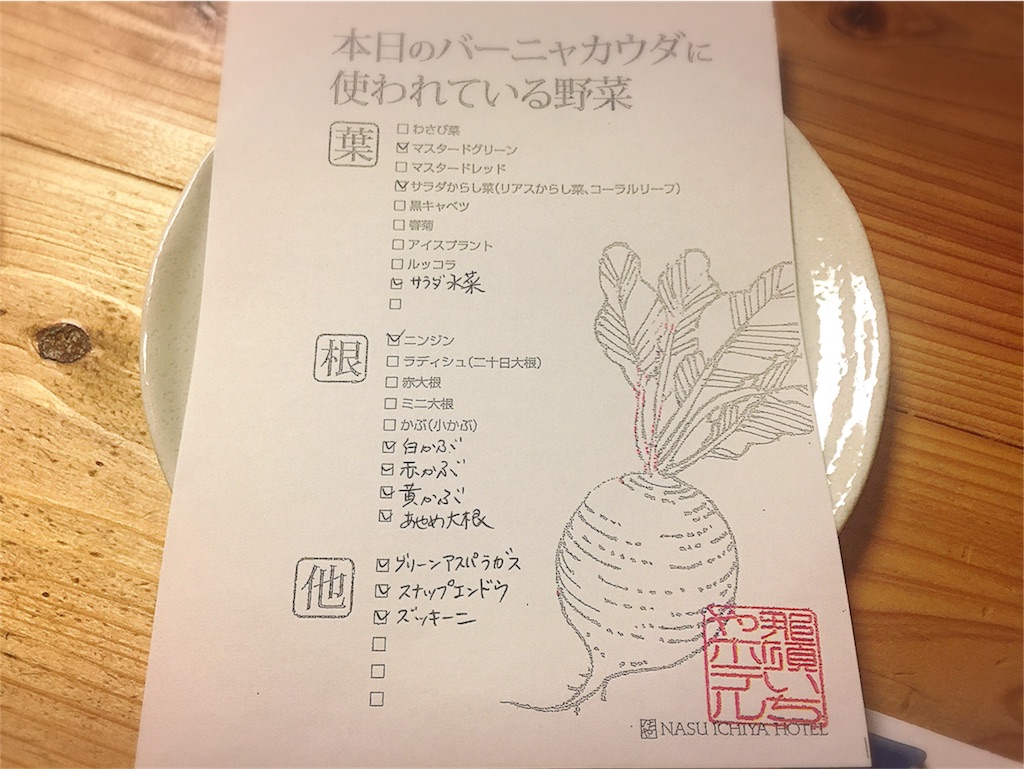 本日のバーニャカウダに
使われている野菜
葉
□わさび菜
☑マスタードグリーン
□マスタードレッド
☑サラダからし菜(リアスからし菜、コーラルリーフ)
□黒キャベツ
□春菊
□アイスプラント
□ルッコラ
☑サラダ水菜
□
根
☑ニンジン
□ラディシュ(二十日大根)
□赤大根
□ミニ大根
□かぶ(小かぶ)
☑白かぶ
☑赤かぶ
☑黄かぶ
☑あやめ大根
他
☑グリーンアスパラガス
☑スナップエンドウ
☑ズッキーニ
□
□
□
那須いち
やホテル
NASU ICHIYA HOTEL